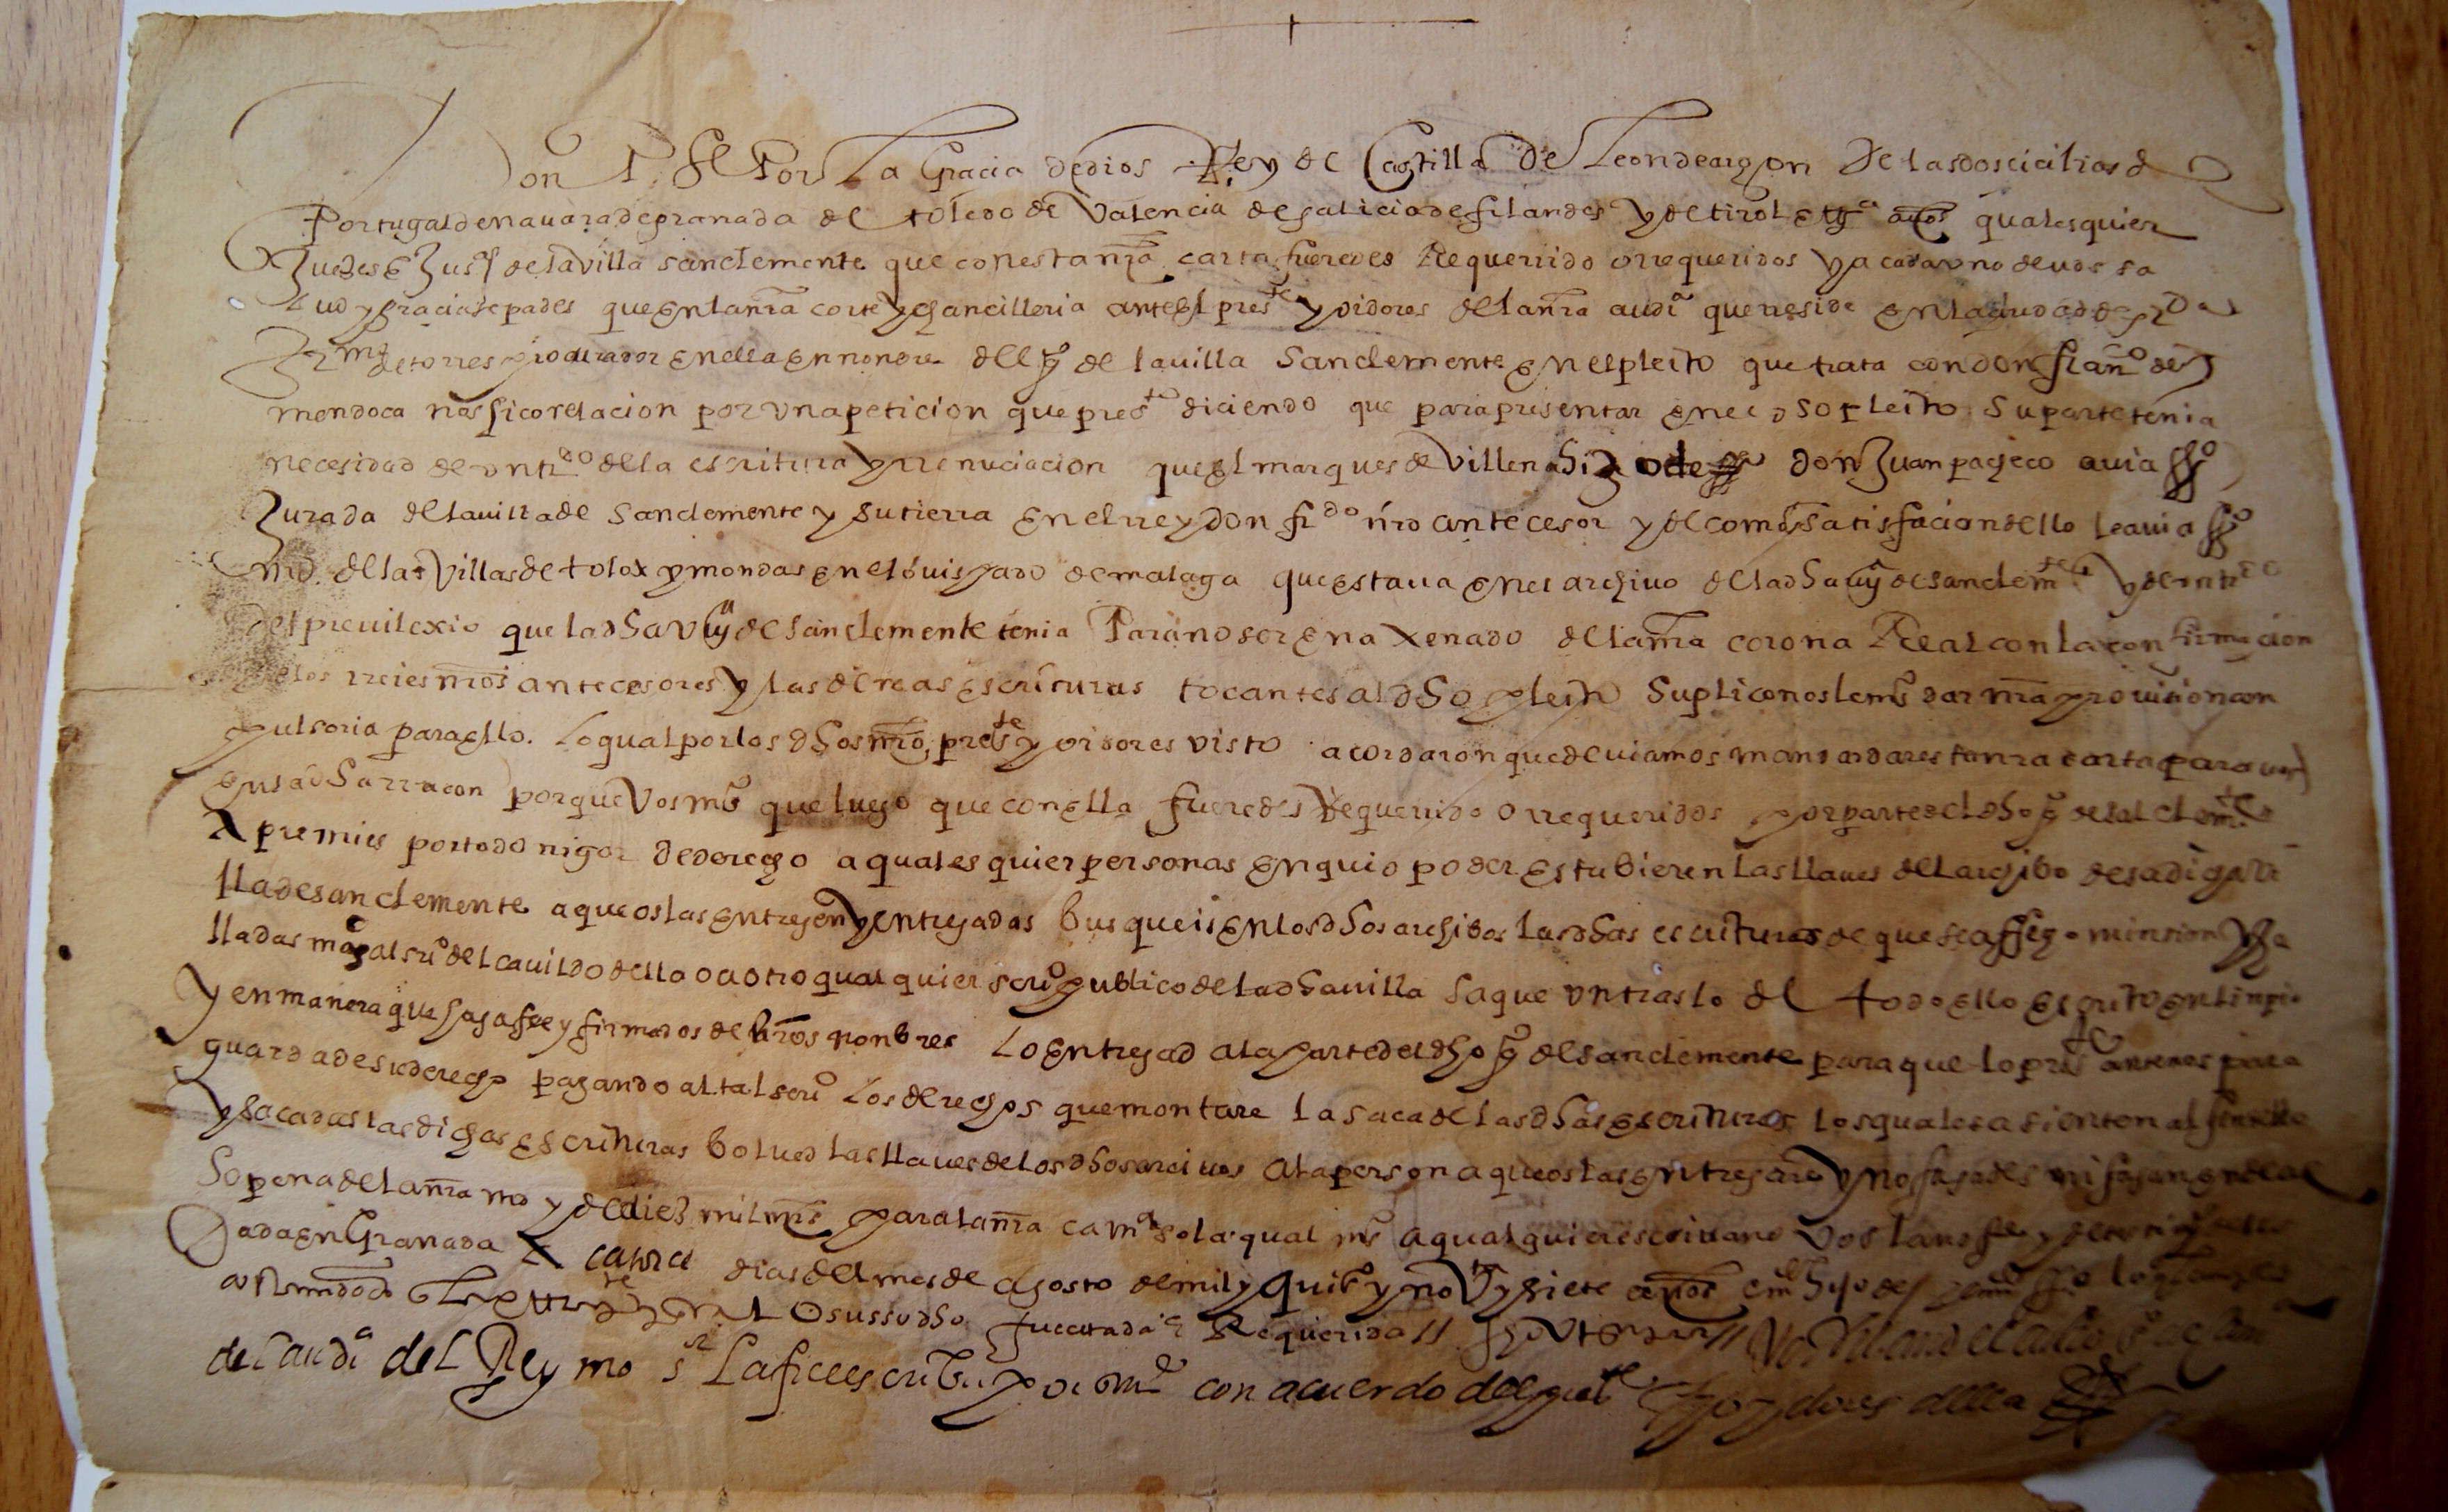 Don Phe Por La Gracia de dios Rey de Castilla de Leon de aragon de las dos cicilias de
Portugal de navara de granada de toledo de Valencia de galicia de flandes y de tirol etca a vos qualesquier
Juezes e Jusas de la villa sanclemente que con esta nra carta fueredes Requerrido o rrequeridos y a cada uno de vos sa
lud y gracia sepades que en la nra corte y chancilleria ante el preste y oidores de la nra audia que rreside en la ciudad de grda
Jrmo de torres procurador en ella en nonbre del qo de la villa Sanclemente en el pleito que trata con don franco de
mendoca nos hico relacion por una peticion que presto diciendo que para presentar en el dho pleito su parte tenia
necesidad de un trdo de la escritura y rrenuciacion que el marques de Villena hijo de don Juan pacheco avia fho
Jurada de la villa de Sanclemente y su tierra en el rrey don frdo nro antecesor y de como satisfacion dello le avia fho
md de las Villas de tolox y mondas en el obispado de malaga que estava en el archivo de la dha va de sanclemte y de un trdo
del previlexio que la dha va de Sanclemente tenia Para no ser enaxenado de la nra corona Real con la confirmacion
de los rreies nros antecesores y las demas escrituras tocantes al dho pleito Suplico nos le ms dar nra provision con
pulsoria para ello. Lo qual por los dhos nro preste y oidores visto acordaron que deviamos mandar dar esta nra carta para vos
en la dha rracon porque Vos ms que luego que con ella fueredes Requerrido o rrequeridos por parte del dho qo de sanclemte
Apremies por todo rrigor de derecho a qualesquier personas en quio poder estubieren las llaves del archibo desa dicha vi
lla de sanclemente a que os las entregen y entregadas busqueis en los dhos archibos las dhas escrituras de que se a ffecho mincion y ha
lladas mas al sno del cavildo della o a otro qualquier scrino publico de la dha villa saque un traslo de todo ello escrito en linpio
y en manera que haga fee y firmados de bros nonbres Lo entregad a la parte del dho qo de sanclemente para que lo preste ante nos para
guarda de su derecho pagando al tal scrino los derechos que montare la saca de las dhas escrituras los quales asienten al fin dello
y sacadas las dichas escrituras bolved las llaves de los dhos arcivos a la persona que os las entregare y no fagades ni fagan ende al
so pena de la nra md y de diez mil mrs para la nra cama so la qual ms a qualquier escrivano vos la nofe y de testimo dello
Dada en Granada A catorce dias del mes de agosto de mil y quis y nobta y siete años
Lo susso dho Requerido
de la audia del Rey nro sr La fice escribir por su mdo con acuerdo del preste y oydores della